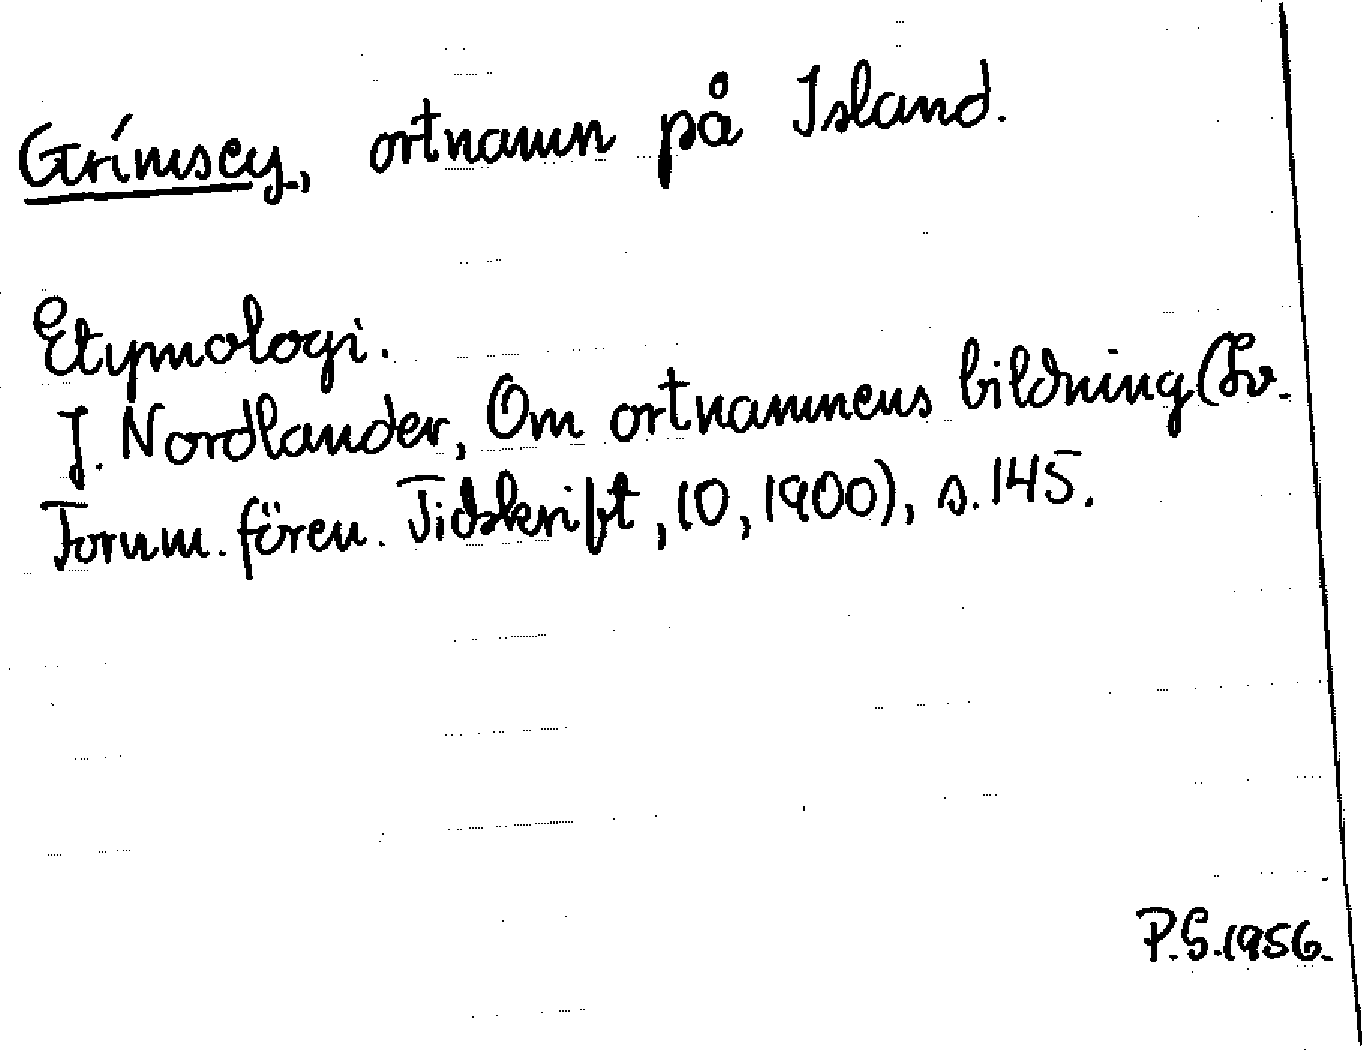 Grímsey, ortnamn på Island.
Etymologi.
J. Nordlander, Om ortnamnens bildning (Sv.
Fornm. fören. Tidskrift, 10, 1900), s. 145.
P.S. 1956.